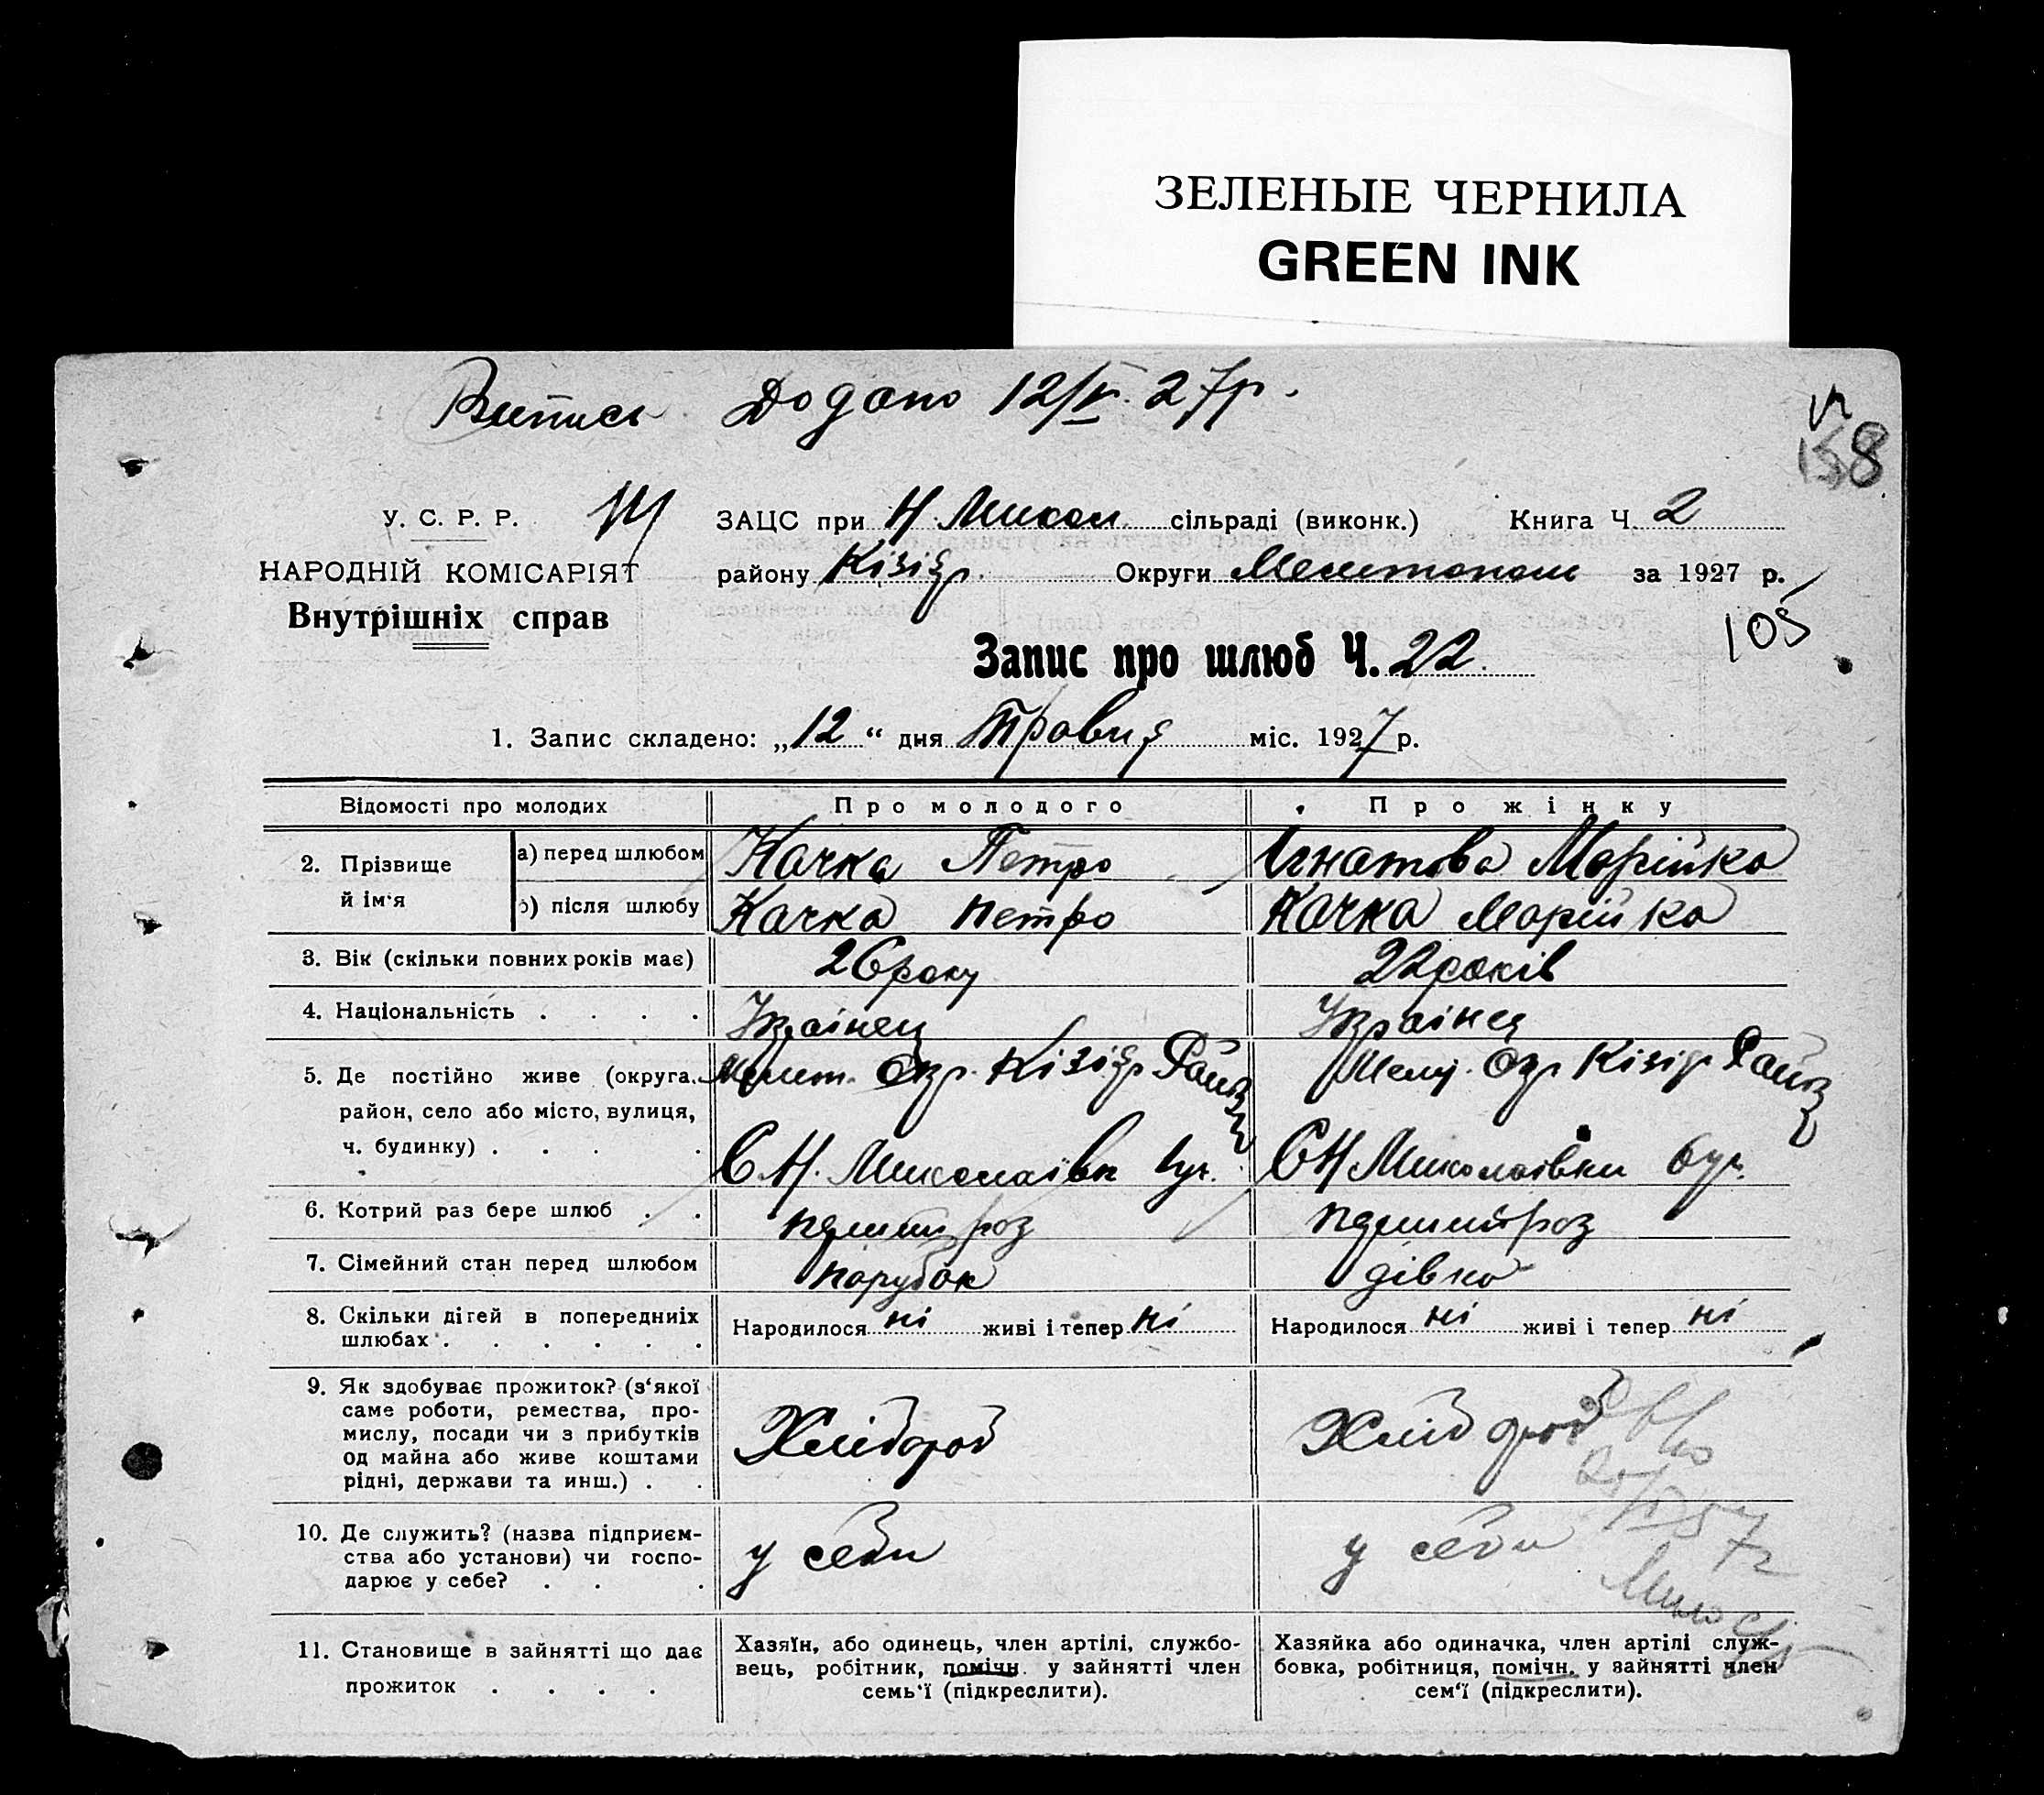 ЗЕЛЕНЫЕ ЧЕРНИЛА
GREEN INK
Витись Додано 12/V. 27р.
158
У. С. Р. Р. ЗАЦС при Н Микол. сільраді (виконк.) Книга Ч. 2
НАРОДНІЙ КОМІСАРІЯТ району Кізіяр. Округи Мелитополь за 1927 р.
Внутрішніх справ
105
Запис про шлюб Ч. 22
1. Запис складено: „12“ дня Травня міс. 1927 р.
Відомості про молодих Про молодого Про жінку
2. Прізвище й ім‘я а) перед шлюбом Качка Петро Ігнатова Марійка
б) після шлюбу Качка Петро Качка Марійка
3. Вік (скільки повних років має) 26 року 22 років
4. Національність . . . . Украінец Украінця
5. Де постійно живе (округа, Мелит. Окр. Кізіяр Район Мелі. Окр Кізіяр Район
район, село або місто, вулиця,
ч. будинку) . . . . С. Н. Миколаівк вул. С Н Миколаівки вул.
6. Котрий раз бере шлюб . . перший раз перший раз
7. Сімейний стан перед шлюбом парубок дівка
8. Скільки дігей в попередниіх шлюбах . . . . . . Народилося ні живі і тепер ні Народилося ні живі і тепер ні
9. Як здобуває прожиток? (з‘якої
саме роботи, ремества, про-
мислу, посади чи з прибутків
од майна або живе коштами
рідні, держави та инш.) . . Хлібороб Хлібороб
10. Де служить? (назва підприєм-
ства або установи) чи госпо-
дарює у себе? . . . у себи у себи
11. Становище в зайнятті що дає
прожиток . . . .
Хазяїн, або одинець, член артілі, службо-
вець, робітник, помічн. у зайнятті член
семь‘ї (підкреслити).
Хазяйка або одиначка, член артілі служ-
бовка, робітниця, помічн. у зайнятті член
сем‘ї (підкреслити).